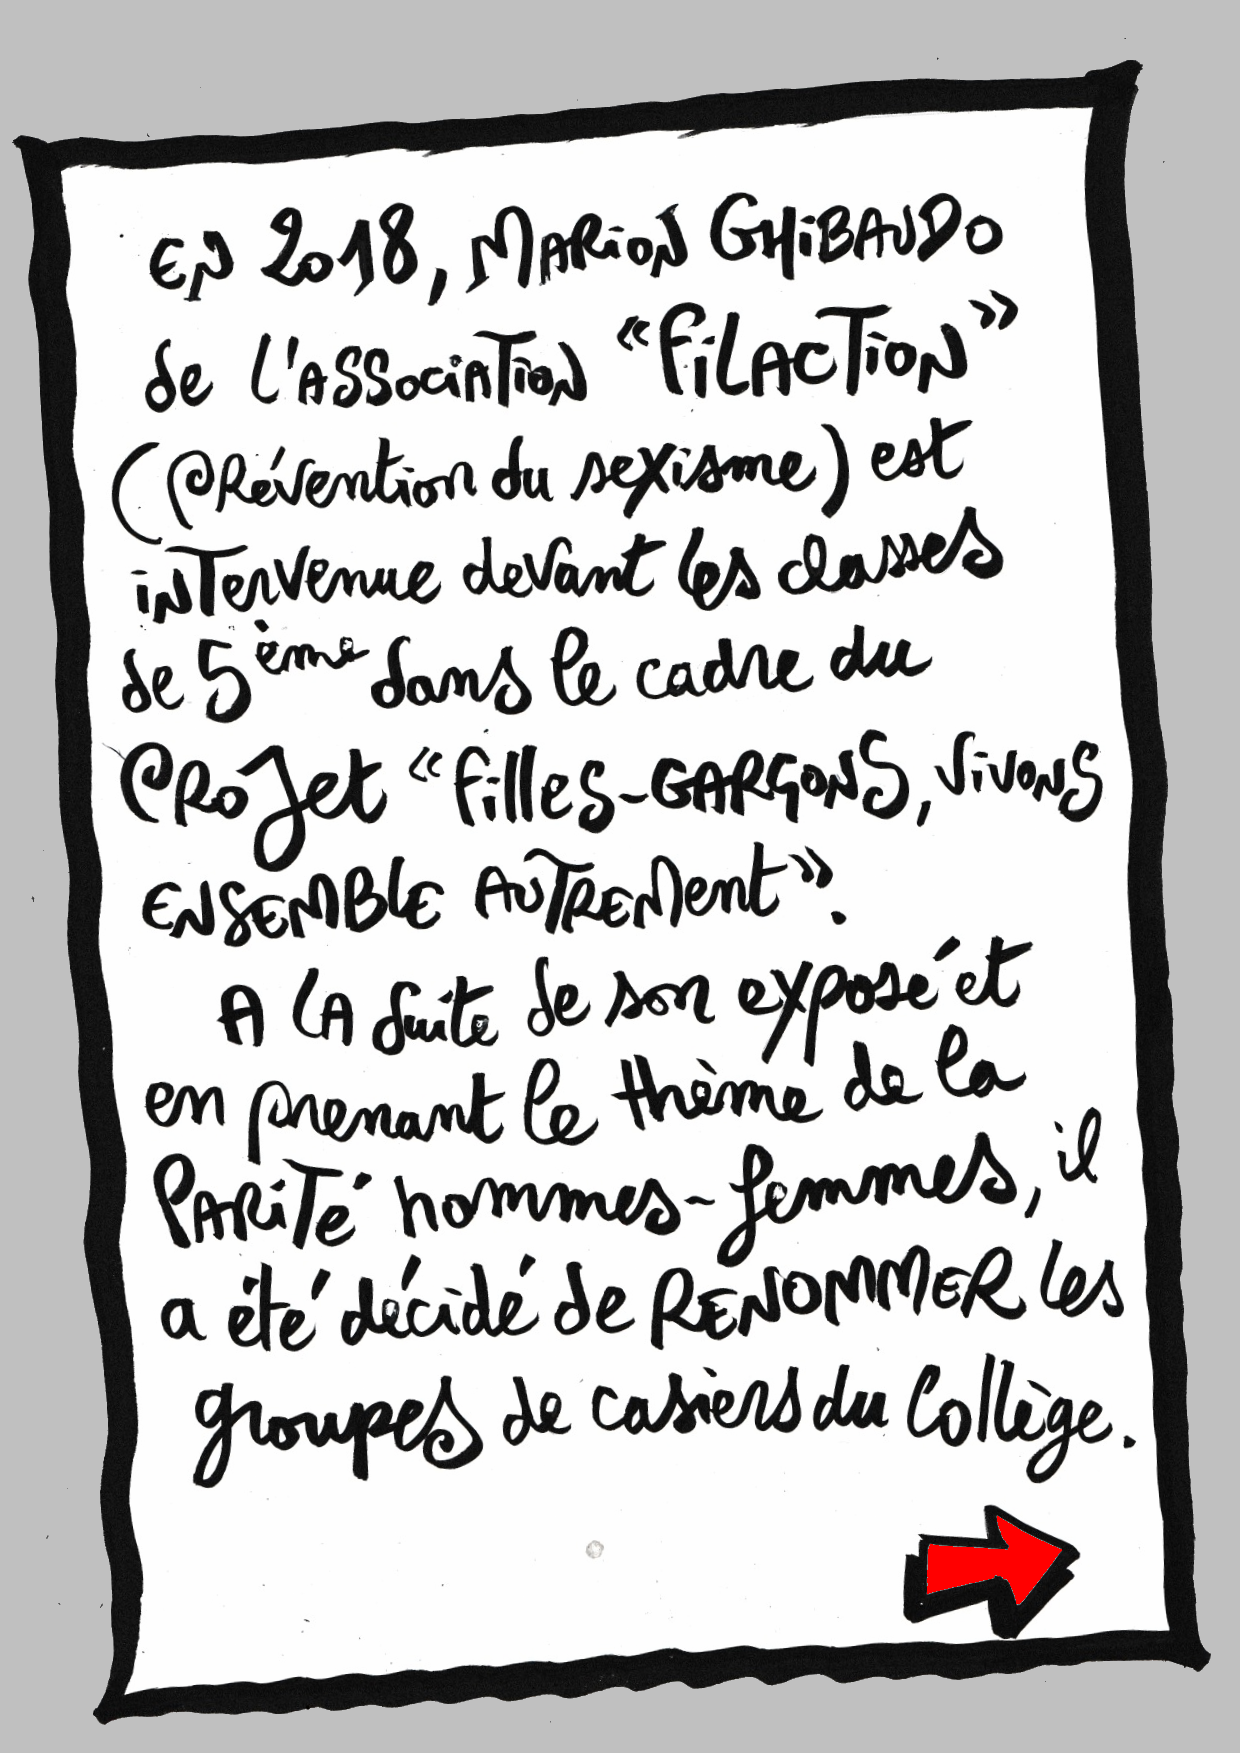 EN 2018, MARION GHIBAUDO
de L'ASSOCIATION "FILACTION"
(Prévention du sexisme) est
intervenue devant les classes
de 5ème dans le cadre du
PROJet "filles-GARÇONS, vivons
ENSEMBLE AUTREMent".
A LA suite de son exposé et
en prenant le thème de la
PARITÉ hommes-femmes, il
a été décidé de RENOMMER les
groupes de casiers du Collège.